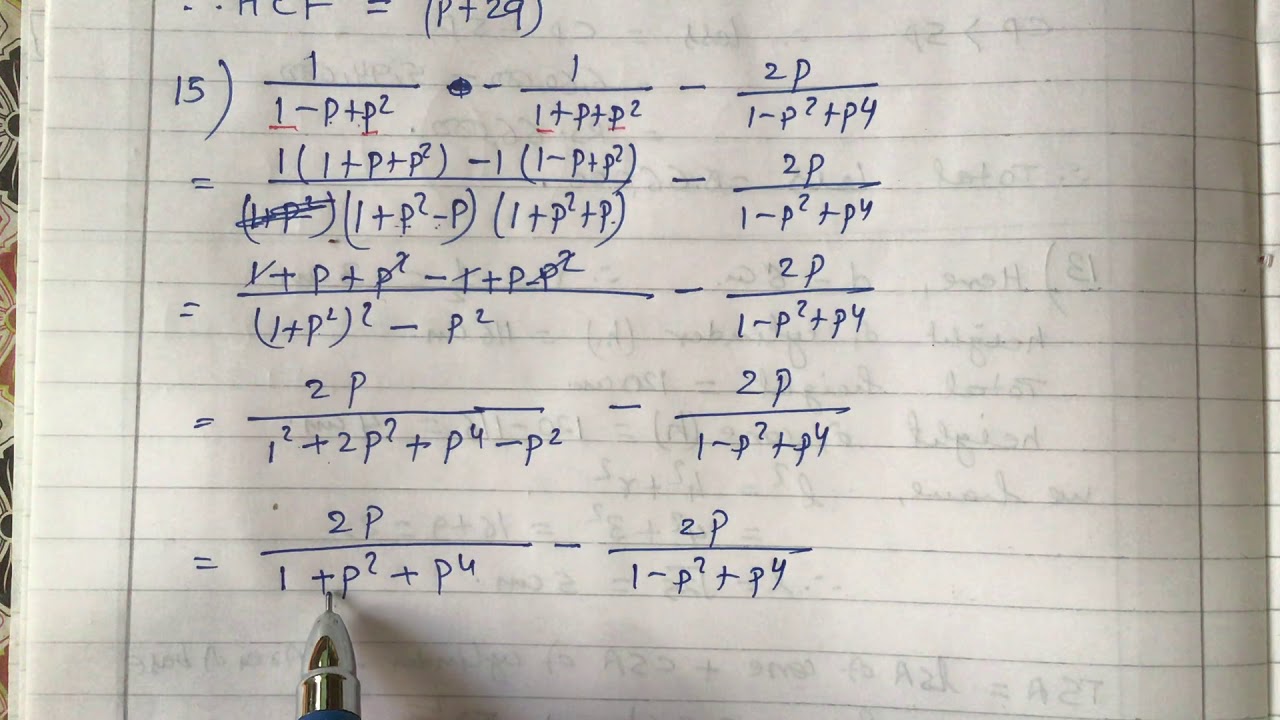 ∴ HCF = (p+2q)
15) 1/(1-p+p²) - 1/(1+p+p²) - 2p/(1-p²+p⁴)
= (1(1+p+p²) -1(1-p+p²))/((1+p²-p)(1+p²+p)) - 2p/(1-p²+p⁴)
= (1+p+p²-1+p-p²)/((1+p²)²-p²) - 2p/(1-p²+p⁴)
= 2p/(1²+2p²+p⁴-p²) - 2p/(1-p²+p⁴)
= 2p/(1+p²+p⁴) - 2p/(1-p²+p⁴)